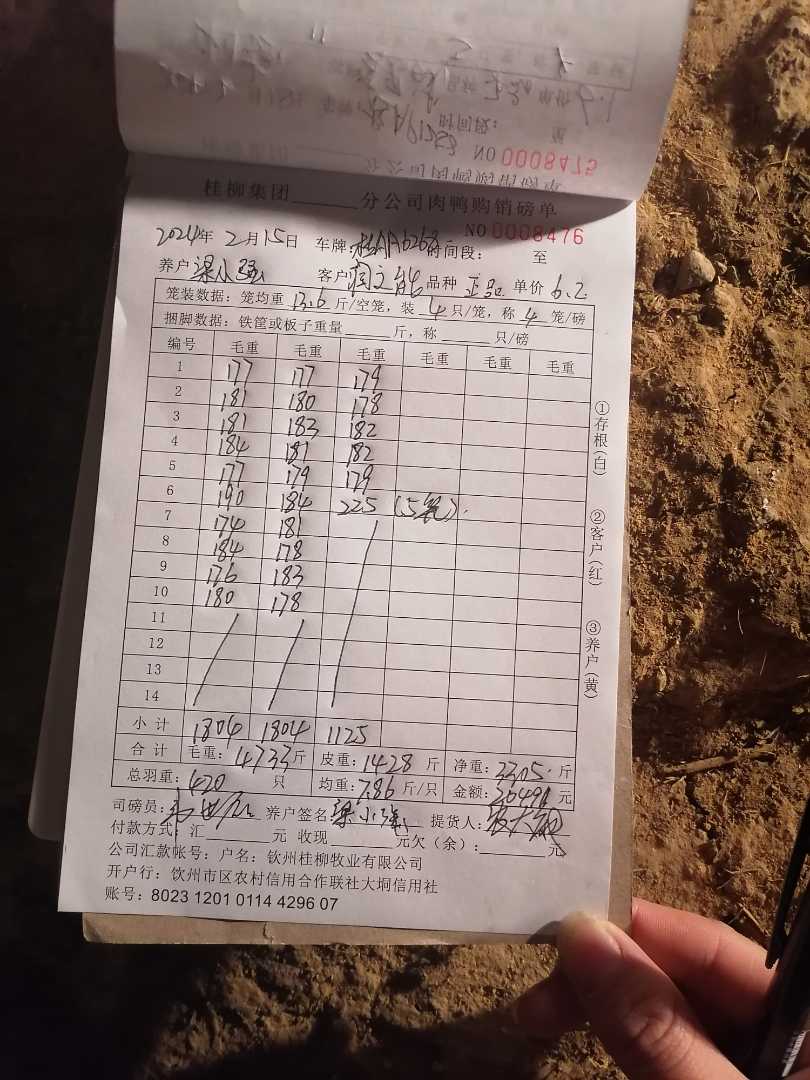 NO 0008475
时间段:
桂柳集团______分公司肉鸭购销磅单
NO 0008476
2024年 2月15日 车牌 桂AA6268 时间段: 至
养户 梁小强 客户 品种 正品 单价 6.2
笼装数据: 笼均重 13.6 斤/空笼, 装 4 只/笼, 称 4 笼/磅
捆脚数据: 铁筐或板子重量______斤, 称______只/磅
编号 毛重 毛重 毛重 毛重 毛重 毛重
1 177 177 179
2 181 180 178
3 181 183 182
4 184 181 182
5 177 179 179
6 190 184 225 (5笼)
7 174 181
8 184 178
9 176 183
10 180 178
11
12
13
14
小计 1804 1804 1125
合计 毛重: 4733斤 皮重: 1428 斤 净重: 3305 斤
总羽重: 420 只 均重: 7.86 斤/只 金额: 20491 元
司磅员: 养户签名 梁小强 提货人:
付款方式: 汇______元 收现______元欠(余):______元
公司汇款帐号: 户名: 钦州桂柳牧业有限公司
开户行: 钦州市区农村信用合作联社大垌信用社
账号: 8023 1201 0114 4296 07
①存根(白)
②客户(红)
③养户(黄)